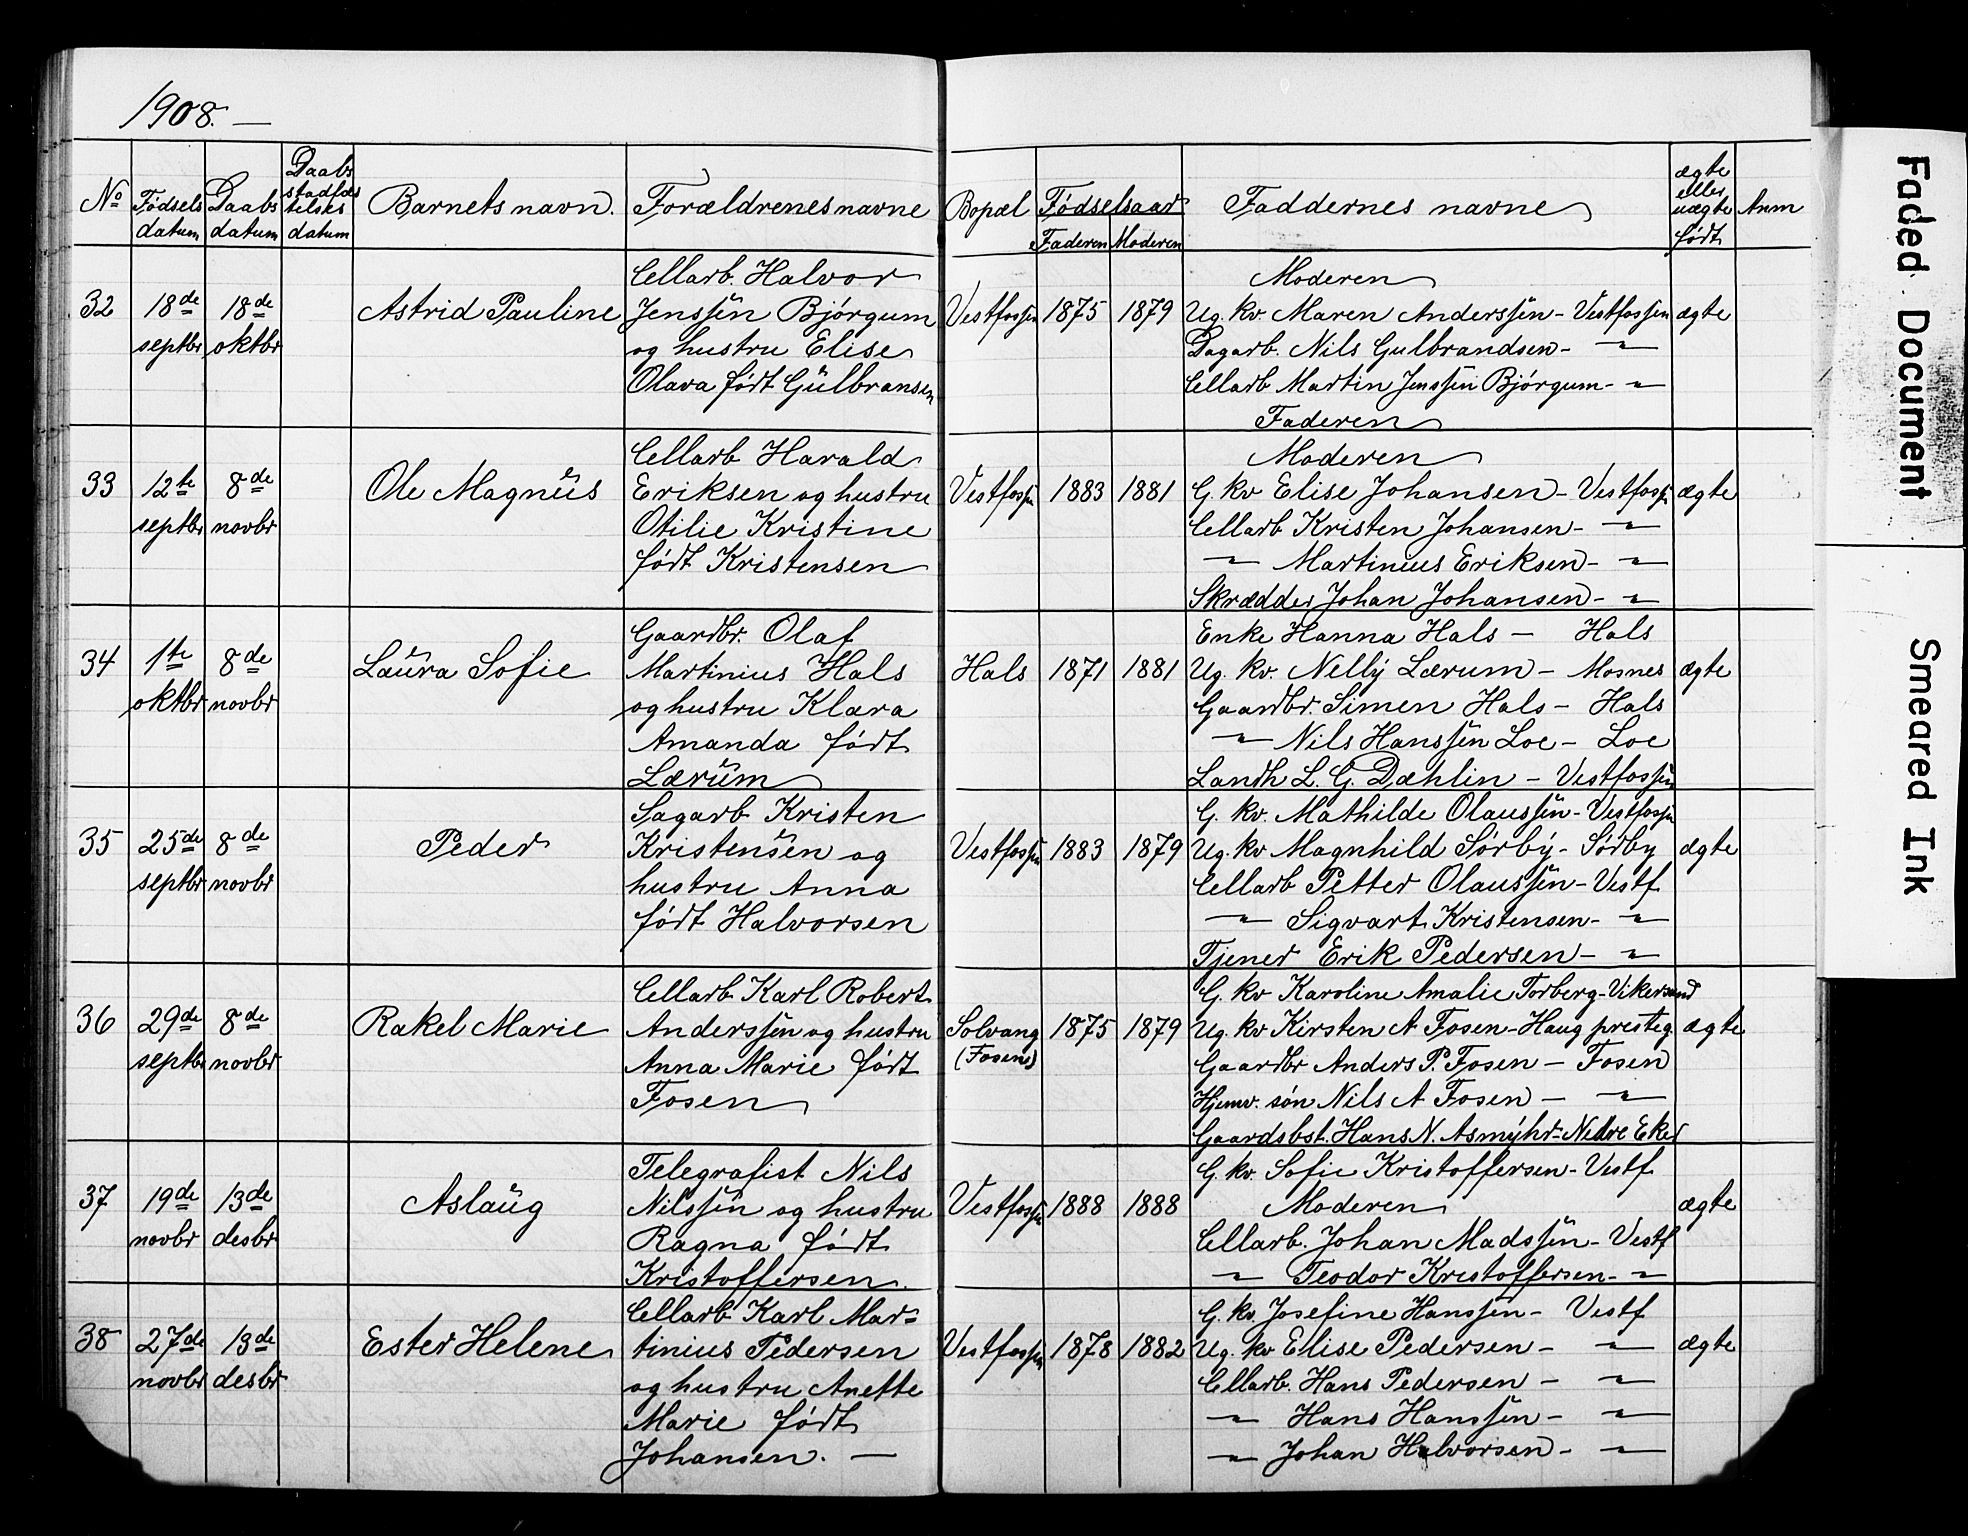 1908. —
No | Fødsels datum | Daabs datum | Daabs stadfæs telses datum | Barnets navn. | Forældrenes navne | Bopæl | Fødselsaar Faderen Moderen | Faddernes navne | ægte eller uægte født | Anm
32 | 18de septbr | 18de oktbr | Astrid Pauline
Cellarb. Halvor
Jenssen Bjørgum
og hustru Elise
Olava født Gulbransen
Vestfossen | 1875 | 1879
Moderen
Ug. kv. Maren Anderssen - Vestfossen
Dagarb. Nils Gulbrandsen - —"—
Cellarb Martin Jenssen Bjørgum - —"—
Faderen
ægte
33 | 12te septbr | 8de novbr | Ole Magnus
Cellarb Harald
Eriksen og hustru
Otilie Kristine
født Kristensen
Vestfossen | 1883 | 1881
Moderen
G. kv Elise Johansen - Vestfossen
Cellarb Kristen Johansen - —"—
—"— Martinius Eriksen - —"—
Skrædder Johan Johansen - —"—
ægte
34 | 1te oktbr | 8de novbr | Laura Sofie
Gaardbr. Olaf
Martinius Hals
og hustru Klara
Amanda født
Lærum
Hals | 1871 | 1881
Enke Hanna Hals — Hals
Ug. kv. Nelly Lærum - Mosnes
Gaardbr. Simen Hals - Hals
—"— Nils Hanssen Loe - Loe
Landh L. G. Dæhlin - Vestfossen
ægte
35 | 25de septbr | 8de novbr | Peder
Sagarb Kristen
Kristensen og
hustru Anna
født Halvorsen
Vestfossen | 1883 | 1879
G. kv. Mathilde Olaussen - Vestfossen
Ug. kv Magnhild Sørby - Sørby
Cellarb Petter Olaussen - Vestf
—"— Sigvart Kristensen - —"—
Tjener Erik Pedersen - —"—
ægte
36 | 29de septbr | 8de novbr | Rakel Marie
Cellarb Karl Robert
Anderssen og hustru
Anna Marie født
Fosen
Solvang (Fosene) | 1875 | 1879
G. kv Karoline Amalie Torberg - Vikersund
Ug. kv Kirsten A Fosen - Haug presteg.
Gaardbr Anders P. Fosen - Fosen
Hjemv. søn Nils A Fosen - —"—
Gaardsbst. Hans N. Asmyhr - Nedre Eker
ægte
37 | 19de novbr | 13de desbr | Aslaug
Telegrafist Nils
Nilssen og hustru
Ragna født
Kristoffersen.
Vestfossen | 1888 | 1888
G. kv. Sofie Kristoffersen - Vestf
Moderen
Cellarb. Johan Madssen - Vestf
—"— Teodor Kristoffersen - —"—
ægte
38 | 27de novbr | 13de desbr | Ester Helene
Cellarb Karl Mar=
tinius Pedersen
og hustru Anette
Marie født
Johansen. —
Vestfossen | 1878 | 1882
G. kv. Josefine Hanssen - Vestf
Ug. kv Elise Pedersen - —"—
Cellarb. Hans Pedersen - —"—
—"— Hans Hanssen - —"—
—"— Johan Halvorsen - —"—
ægte
Faded Document
Smeared Ink